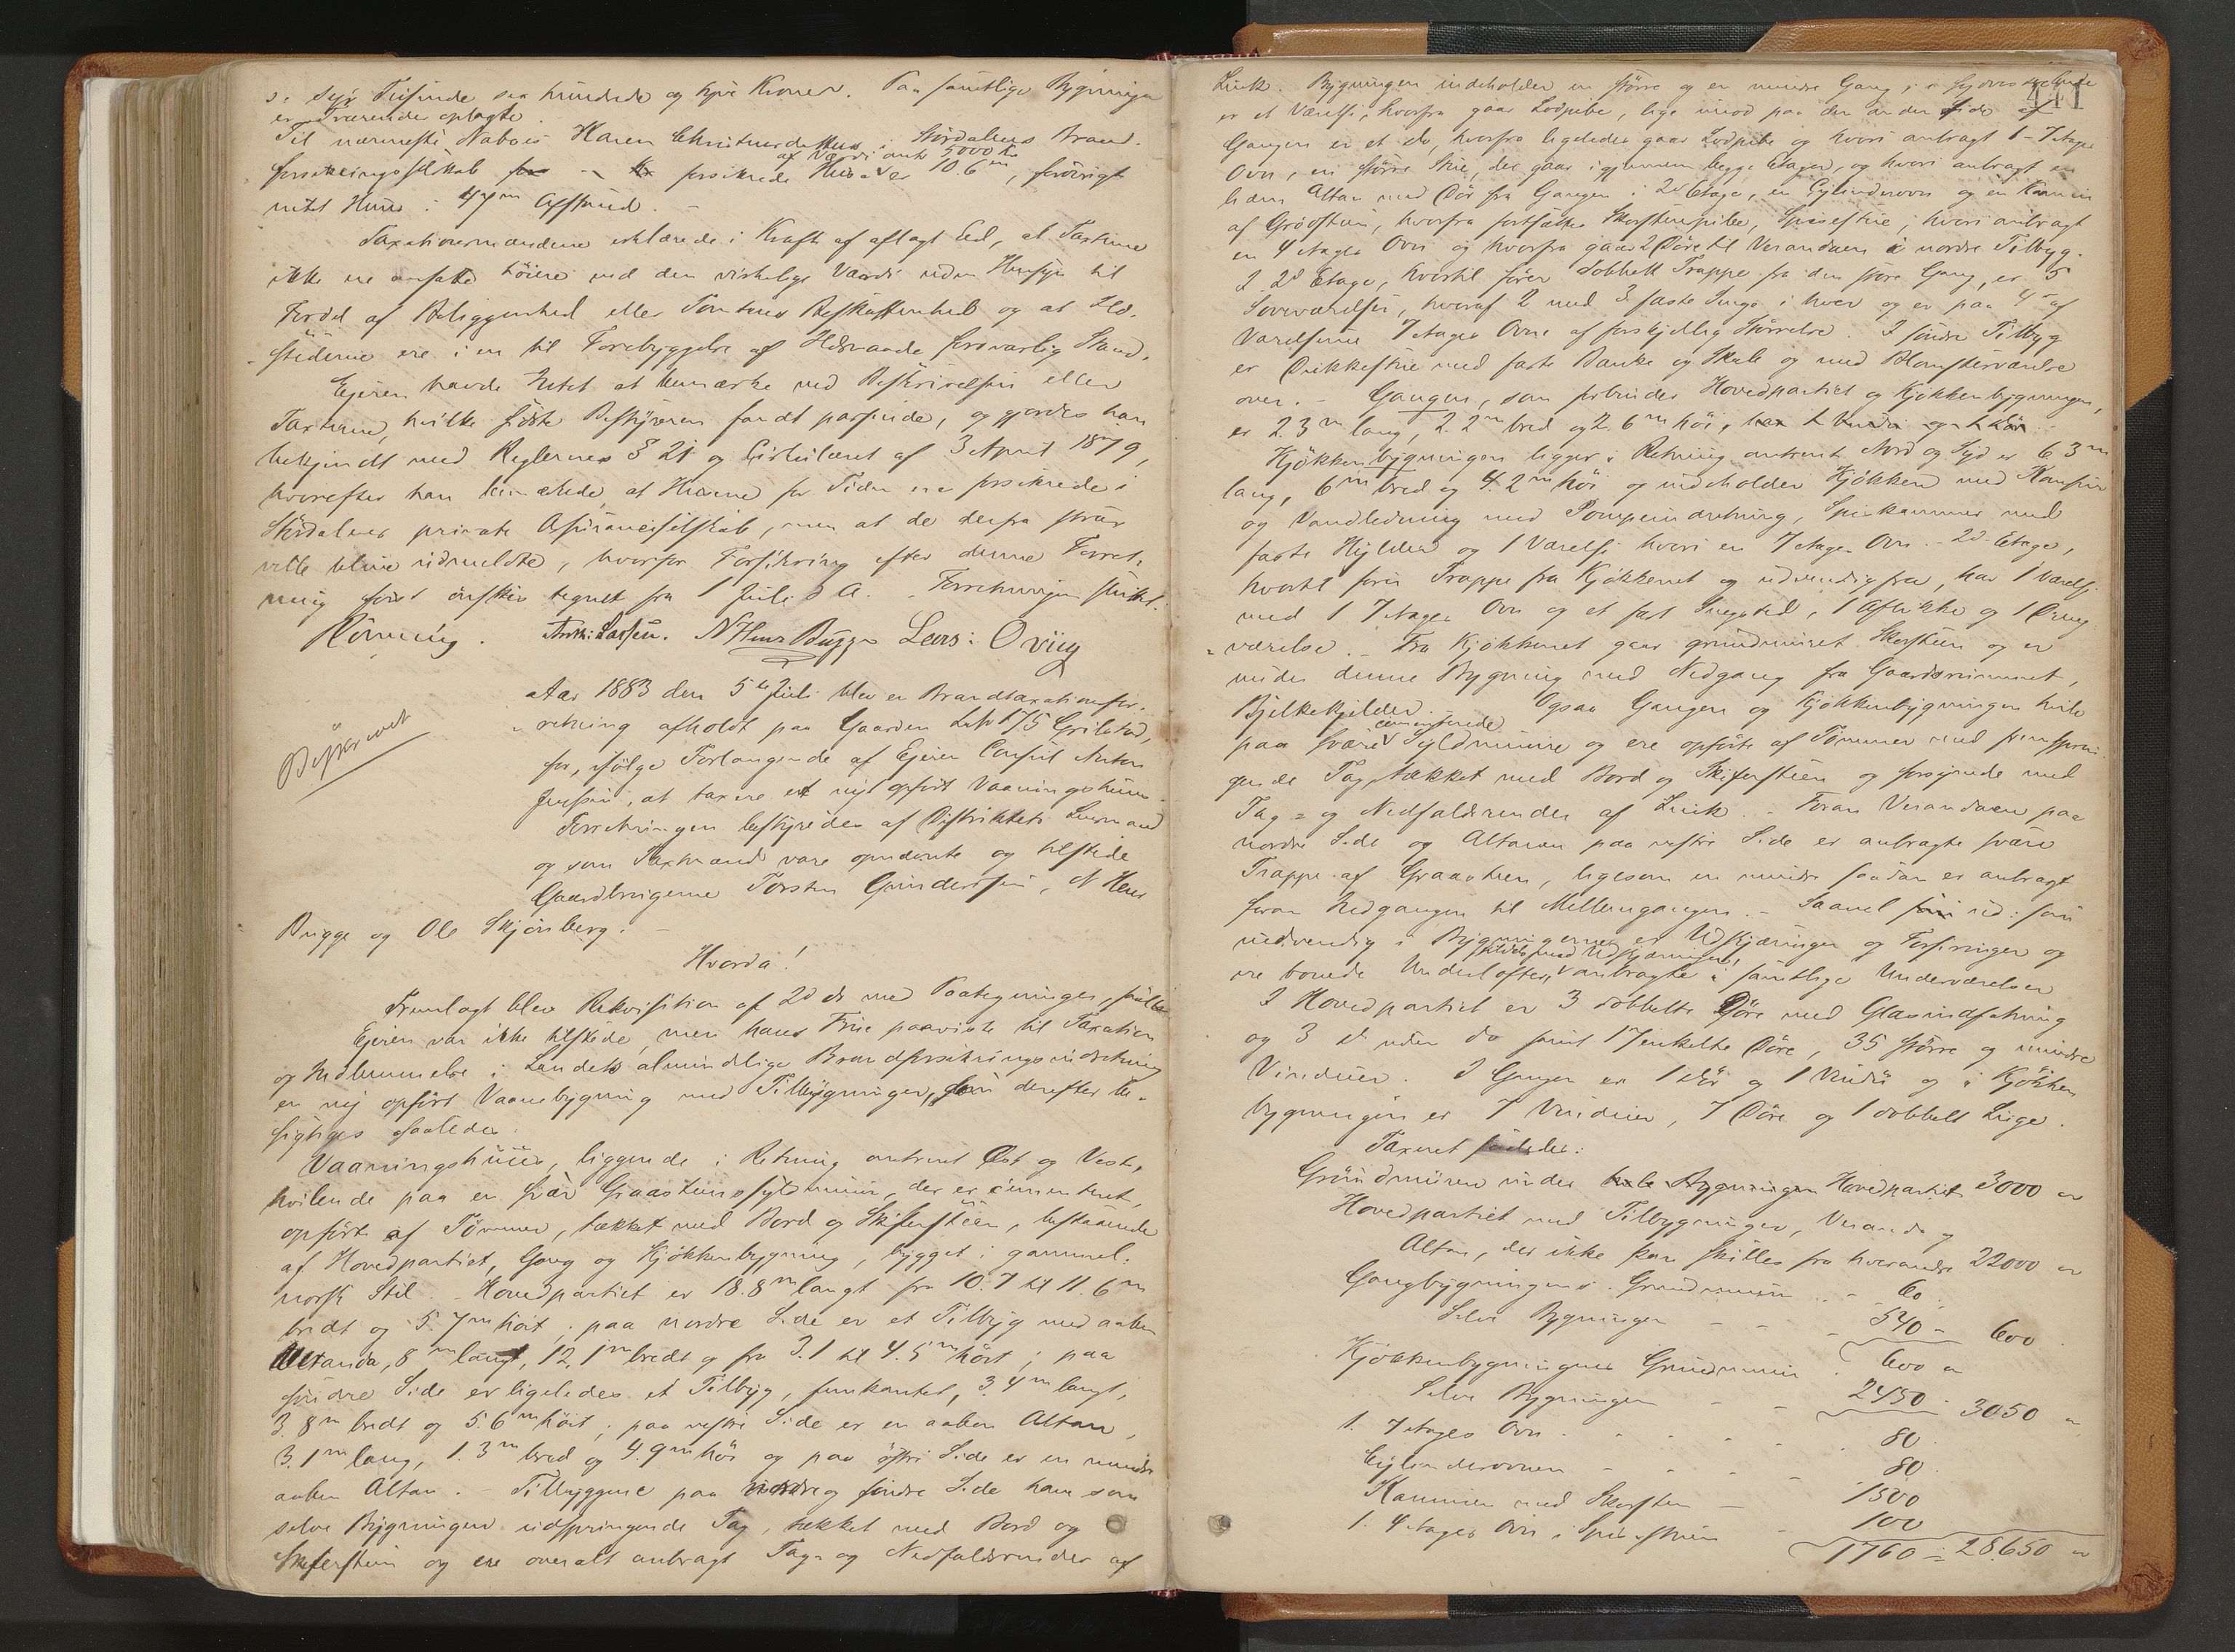 Tusinde sex hundrede og syv Kroner. Paa samtlige Bygninger
er Tværender oplagte.
Til nærmeste Nabo: Karen Christensdatters i Stördalens Brand-
forsikringsselskab for forsikrede Huus af Værdi omtr 5000 Kr er 10.6 m, forövrigt
intet Huus i 47 m Afstand. -
Taxationsmændene erklærede i Kraft af aflagt Eed, at Taxterne
ikke ere ansatte höiere end den virkelige Værdi uden Hensyn til
Fordel af Beliggenhed eller Tomtens Beskaffenhed og at Ild-
stederne ere i en til Forebyggelse af Ildsvaade forsvarlig Stand.
Ejeren havde Intet at bemærke ved Beskrivelsen eller
Taxterne, hvilke sidste Bestyreren fandt passende, og gjordes han
bekjendt med Reglernes § 21 og Cirkulæret af 3 April 1879,
hvorefter han bemærkede, at Husene for Tiden ere forsikrede i
Stördalens private Assuranceselskab, men at de derfra strax
ville blive udmeldte, hvorfor Forsikring efter denne Forret-
ning först önskes tegnet fra 1 Juli d. A. - Forretningen sluttet.
Rönning. Andr: Larsen. N Hens Bugge Lars: Oving
Beskrevet
Aar 1883 den 5te Juli blev en Brandtaxationsfor-
retning afholdt paa Gaarden L No 175 Grilstad,
for, ifölge Forlangende af Ejeren Consul Anton
Jenssen, at taxere et nyt opfört Vaaningshuus.
Forretningen bestyredes af Distriktets Lensmand
og som Taxtmænd vare opnævnte og tilstede
Gaardbrugerne Torsten Gundersen, N Hens
Bugge og Ole Skjönberg. -
Hvorda!
Fremlagt blev Rekvisition af 2d ds med Paategninger,
Ejeren var ikke tilstede, men hans Frue paaviste til Taxation
og Indlemmelse i Landets almindelige Brandforsikringsindretning
en ny opfört Vaanebygning med Tilbygninger, som derefter be-
sigtiges saaledes:
Vaaningshuus, liggende i Retning omtrent Öst og Vest,
hvilende paa en svær Graastenssyldmuur, der er cimenteret,
opfört af Tömmer, tækket med Bord og Skifersteen, bestaaende
af Hovedpartiet, Gang og Kjökkenbygning, bygget i gammel-
norsk Stil. - Hovedpartiet er 18.8 m langt fra 10.7 til 11.6 m
bredt og 5.7 m höit; paa nordre Side er et Tilbyg med aaben
Veranda, 8 m langt, 12.1 m bredt og fra 3.1 til 4.5 m höit; paa
söndre Side er ligeledes et Tilbyg, femkantet, 3.4 m langt,
3.8 m bredt og 5.6 m höit; paa vestre Side er en aaben Altan,
3.1 m lang, 1.3 m bred og 4.9 m höi og paa östre Side er en mindre
aaben Altan. - Tilbyggene paa nordre og söndre Side have som
selve Bygningen udspringende Tag, tækket med Bord og
Skifersteen og ere overalt anbragt Tag- og Nedfaldsrender af
441
Zink. Bygningen indeholder en större og en mindre Gang, i
er et Værelse, hvorfra gaar Lodpibe, lige imod paa den anden Side af
Gangen er et do, hvorfra ligeledes gaar Lodpibe og hvori anbragt 1 - 7 etages
Ovn, en större Stue, der gaar igjennem begge Etager, og hvori anbragt en
liden Altan med Dör fra Gangen i 2d Etage, en Cylinderovn og en Kamin
af Grödsteen, hvorfra fortsættes Skorsteenspibe, Spisestue, hvori anbragt
en 4 etages Ovn og hvorfra gaar 2 Döre til Verandaen i nordre Tilbyg.
I 2d Etage, hvortil förer dobbelt Trappe fra den store Gang, er 5
Soveværelser, hvoraf 2 med 3 faste Senge i hver og er paa 4 af
Værelserne 7 etages Ovne af forskjellig Störrelse. I söndre Tilbyg
er Drikkestue med faste Bænke og Skab og med Blomsterværelse
over. - Gangen, som forbinder Hovedpartiet og Kjökkenbygningen,
er 2.3 m lang, 2.2 m bred og 2.6 m höi, har 1 Vindu og 1 Dör
Kjökkenbygningen ligger i Retning omtrent Nord og Syd er 6.3 m
lang, 6 m bred og 4.2 m höi og indeholder Kjökken med Komfur
og Vandledning med Pompeindretning, Spisekammer med
faste Hylder og 1 Værelse hvori en 7 etages Ovn. - 2d Etage,
hvortil förer Trappe fra Kjökkenet og udvendig fra, har 1 Værelse
med 1 7 etages Ovn og et fast Sengested, 1 Aflukke og 1 Dreng-
værelse. - Fra Kjökkenet gaar grundmuret Skorsteen og er
under denne Bygning med Nedgang fra Gaardsrummet,
Bjelkekjelder. Ogsaa Gangen og Kjökkenbygningen hvile
paa svære cimenterede Syldmure og ere opförte af Tömmer med fremsprin-
gende Tag, tækket med Bord og Skifersteen og forsynede med
Tag- og Nedfaldsrender af Zink. - Foran Verandaen paa
nordre Side og Altanen paa vestre Side er anbragte svære
Trapper af Graasteen, ligesom en mindre saadan er anbragt
foran Nedgangen til Mellemgangen. - Saavel ud- som
indvendig i Bygningerne er Udskjæringer og Forsiringer og
ere bonede Underlofter, med Udskjæringer, anbragte i samtlige Underværelser
I Hovedpartiet er 3 dobbelte Döre med Glasindfatning
og 3 d uden do samt 17 enkelte Döre, 35 större og mindre
Vinduer. I Gangen er 1 Dör og 1 Vindu og i Kjökken
bygningen er 7 Vinduer, 7 Döre og 1 dobbelt Luge.
Taxeret saaledes:
Grundmuren under hele Bygningen Hovedpartiet 3000 "
Hovedpartiet med Tilbygninger, Veranda og
Altan, der ikke kan skilles fra hverandre 22000 "
Gangbygningens Grundmuur - 60
Selve Bygningen - - 540 - 600
Kjökkenbygningens Grundmuur 600 "
Selve Bygningen - - 2450 - 3050 "
1. 7 etages Ovn - - - 80
Cylinderovnen - - - 80
Kaminen med Skorsten - 1500
1. 4 etages Ovn i Spisestuen - 100
1760 = 28650 "